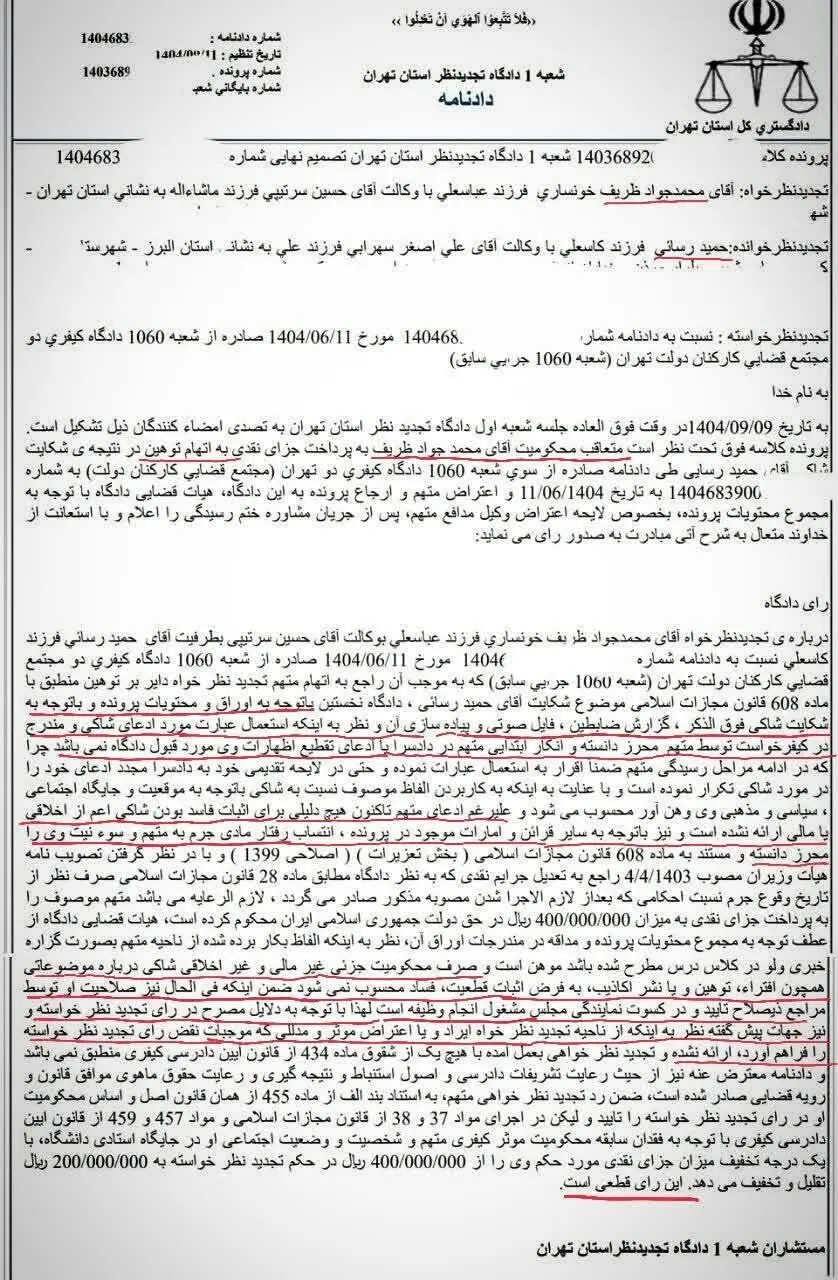 «فَلاَ تَتَّبِعوُا اَلهَوي اَنْ تَعدِلُوا»
شماره دادنامه : 1404683
تاریخ تنظیم : 1404/09/11
شماره پرونده : 1403689
شماره بایگانی شعب
شعبه 1 دادگاه تجدیدنظر استان تهران
دادنامه
دادگستري کل استان تهران
پرونده کلاسه 14036892 شعبه 1 دادگاه تجدیدنظر استان تهران تصمیم نهایی شماره 1404683
تجدیدنظرخواه: آقای محمدجواد ظریف خونساري فرزند عباسعلي با وکالت آقای حسین سرتیپي فرزند ماشاءاله به نشاني استان تهران -
شه
تجدیدنظرخوانده:حمید رسائي فرزند کاسعلي با وکالت آقای علي اصغر سهرابي فرزند علي به نشانی استان البرز - شهرستا -
تجدیدنظرخواسته : نسبت به دادنامه شماره 140468 مورخ 1404/06/11 صادره از شعبه 1060 دادگاه کیفري دو
مجتمع قضایي کارکنان دولت تهران (شعبه 1060 جزایي سابق)
به نام خدا
به تاریخ 1404/09/09در وقت فوق العاده جلسه شعبه اول دادگاه تجدید نظر استان تهران به تصدی امضاء کنندگان ذیل تشکیل است.
پرونده کلاسه فوق تحت نظر است متعاقب محکومیت آقای محمد جواد ظریف به پرداخت جزای نقدی به اتهام توهین در نتیجه ی شکایت
شاکی آقای حمید رسایی طی دادنامه صادره از سوي شعبه 1060 دادگاه کیفري دو تهران (مجتمع قضایي کارکنان دولت) به شماره
1404683900 به تاریخ 11/06/1404 و اعتراض متهم و ارجاع پرونده به این دادگاه، هیات قضایی دادگاه با توجه به
مجموع محتویات پرونده، بخصوص لایحه اعتراض وکیل مدافع متهم، پس از جریان مشاوره ختم رسیدگی را اعلام و با استعانت از
خداوند متعال به شرح آتی مبادرت به صدور رای می نماید:
رای دادگاه
درباره ی تجدیدنظرخواه آقای محمدجواد ظریف خونساري فرزند عباسعلي بوکالت آقای حسین سرتیپي بطرفیت آقای حمید رسائي فرزند
کاسعلي نسبت به دادنامه شماره 14046 مورخ 1404/06/11 صادره از شعبه 1060 دادگاه کیفري دو مجتمع
قضایي کارکنان دولت تهران (شعبه 1060 جزایي سابق) که به موجب آن راجع به اتهام متهم تجدید نظر خواه دایر بر توهین منطبق با
ماده 608 قانون مجازات اسلامی موضوع شکایت آقای حمید رسائی ، دادگاه نخستین باتوجه به اوراق و محتویات پرونده و باتوجه به
شکایت شاکی فوق الذکر ، گزارش ضابطین ، فایل صوتی و پیاده سازی آن و نظر به اینکه استعمال عبارت مورد ادعای شاکی و مندرج
در کیفرخواست توسط متهم محرز دانسته و انکار ابتدایی متهم در دادسرا با ادعای تقطیع اظهارات وی مورد قبول دادگاه نمی باشد چرا
که در ادامه مراحل رسیدگی متهم ضمناً اقرار به استعمال عبارات نموده و حتی در لایحه تقدیمی خود به دادسرا مجدد ادعای خود را
در مورد شاکی تکرار نموده است و با عنایت به اینکه به کاربردن الفاظ موصوف نسبت به شاکی باتوجه به موقعیت و جایگاه اجتماعی
، سیاسی و مذهبی وی وهن آور محسوب می شود و علیرغم ادعای متهم تاکنون هیچ دلیلی برای اثبات فاسد بودن شاکی اعم از اخلاقی
یا مالی ارائه نشده است و نیز باتوجه به سایر قرائن و امارات موجود در پرونده ، انتساب رفتار مادی جرم به متهم و سوء نیت وی را
محرز دانسته و مستند به ماده 608 قانون مجازات اسلامی ( بخش تعزیرات ) ( اصلاحی 1399 ) و با در نظر گرفتن تصویب نامه
هیأت وزیران مصوب 4/4/1403 راجع به تعدیل جرایم نقدی که به نظر دادگاه مطابق ماده 28 قانون مجازات اسلامی صرف نظر از
تاریخ وقوع جرم نسبت احکامی که بعداز لازم الاجرا شدن مصوبه مذکور صادر می گردد ، لازم الرعایه می باشد متهم موصوف را
به پرداخت جزای نقدی به میزان 400/000/000 ریال در حق دولت جمهوری اسلامی ایران محکوم کرده است، هیات قضایی دادگاه از
عطف توجه به مجموع محتویات پرونده و مداقه در مندرجات اوراق آن، نظر به اینکه الفاظ بکار برده شده از ناحیه متهم بصورت گزاره
خبری ولو در کلاس درس مطرح شده باشد موهن است و صرف محکومیت جزئی غیر مالی و غیر اخلاقی شاکی درباره موضوعاتی
همچون افتراء، توهین و یا نشر اکاذیب، به فرض اثبات قطعیت، فساد محسوب نمی شود ضمن اینکه فی الحال نیز صلاحیت او توسط
مراجع ذیصلاح تایید و در کسوت نمایندگی مجلس مشغول انجام وظیفه است لهذا با توجه به دلایل مصرح در رای تجدید نظر خواسته و
نیز جهات پیش گفته نظر به اینکه از ناحیه تجدید نظر خواه ایراد و یا اعتراض موثر و مدللی که موجبات نقض رای تجدید نظر خواسته
را فراهم آورد، ارائه نشده و تجدید نظر خواهی بعمل آمده با هیچ یک از شقوق ماده 434 از قانون آیین دادرسی کیفری منطبق نمی باشد
و دادنامه معترض عنه نیز از حیث رعایت تشریفات دادرسی و اصول استنباط و نتیجه گیری و رعایت حقوق ماهوی موافق قانون و
رویه قضایی صادر شده است، ضمن رد تجدید نظر خواهی متهم، به استناد بند الف از ماده 455 از همان قانون اصل و اساس محکومیت
او در رای تجدید نظر خواسته را تایید و لیکن در اجرای مواد 37 و 38 از قانون مجازات اسلامی و مواد 457 و 459 از قانون آیین
دادرسی کیفری با توجه به فقدان سابقه محکومیت موثر کیفری متهم و شخصیت و وضعیت اجتماعی او در جایگاه استادی دانشگاه، با
یک درجه تخفیف میزان جزای نقدی مورد حکم وی را از 400/000/000 ریال در حکم تجدید نظر خواسته به 200/000/000 ریال
تقلیل و تخفیف می دهد. این رای قطعی است.
مستشاران شعبه 1 دادگاه تجدیدنظراستان تهران